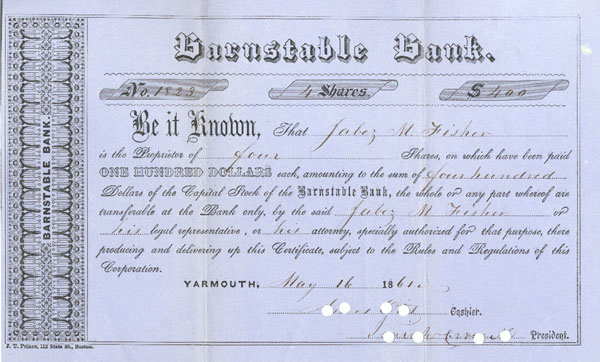 Barnstable Bank.
No. 1823 4 Shares. $ 400
Be it Known, That Jabez M Fisher
is the Proprietor of Four Shares, on which have been paid
ONE HUNDRED DOLLARS each, amounting to the sum of Four hundred
Dollars of the Capital Stock of the Barnstable Bank, the whole or any part whereof are
transferable at the Bank only, by the said Jabez M Fisher or
his legal representative, or his attorney, specially authorized for that purpose, there
producing and delivering up this Certificate, subject to the Rules and Regulations of this
Corporation.
YARMOUTH, May 16 1861.
Cashier.
President.
BARNSTABLE BANK.
J. T. Prince, 112 State St., Boston.